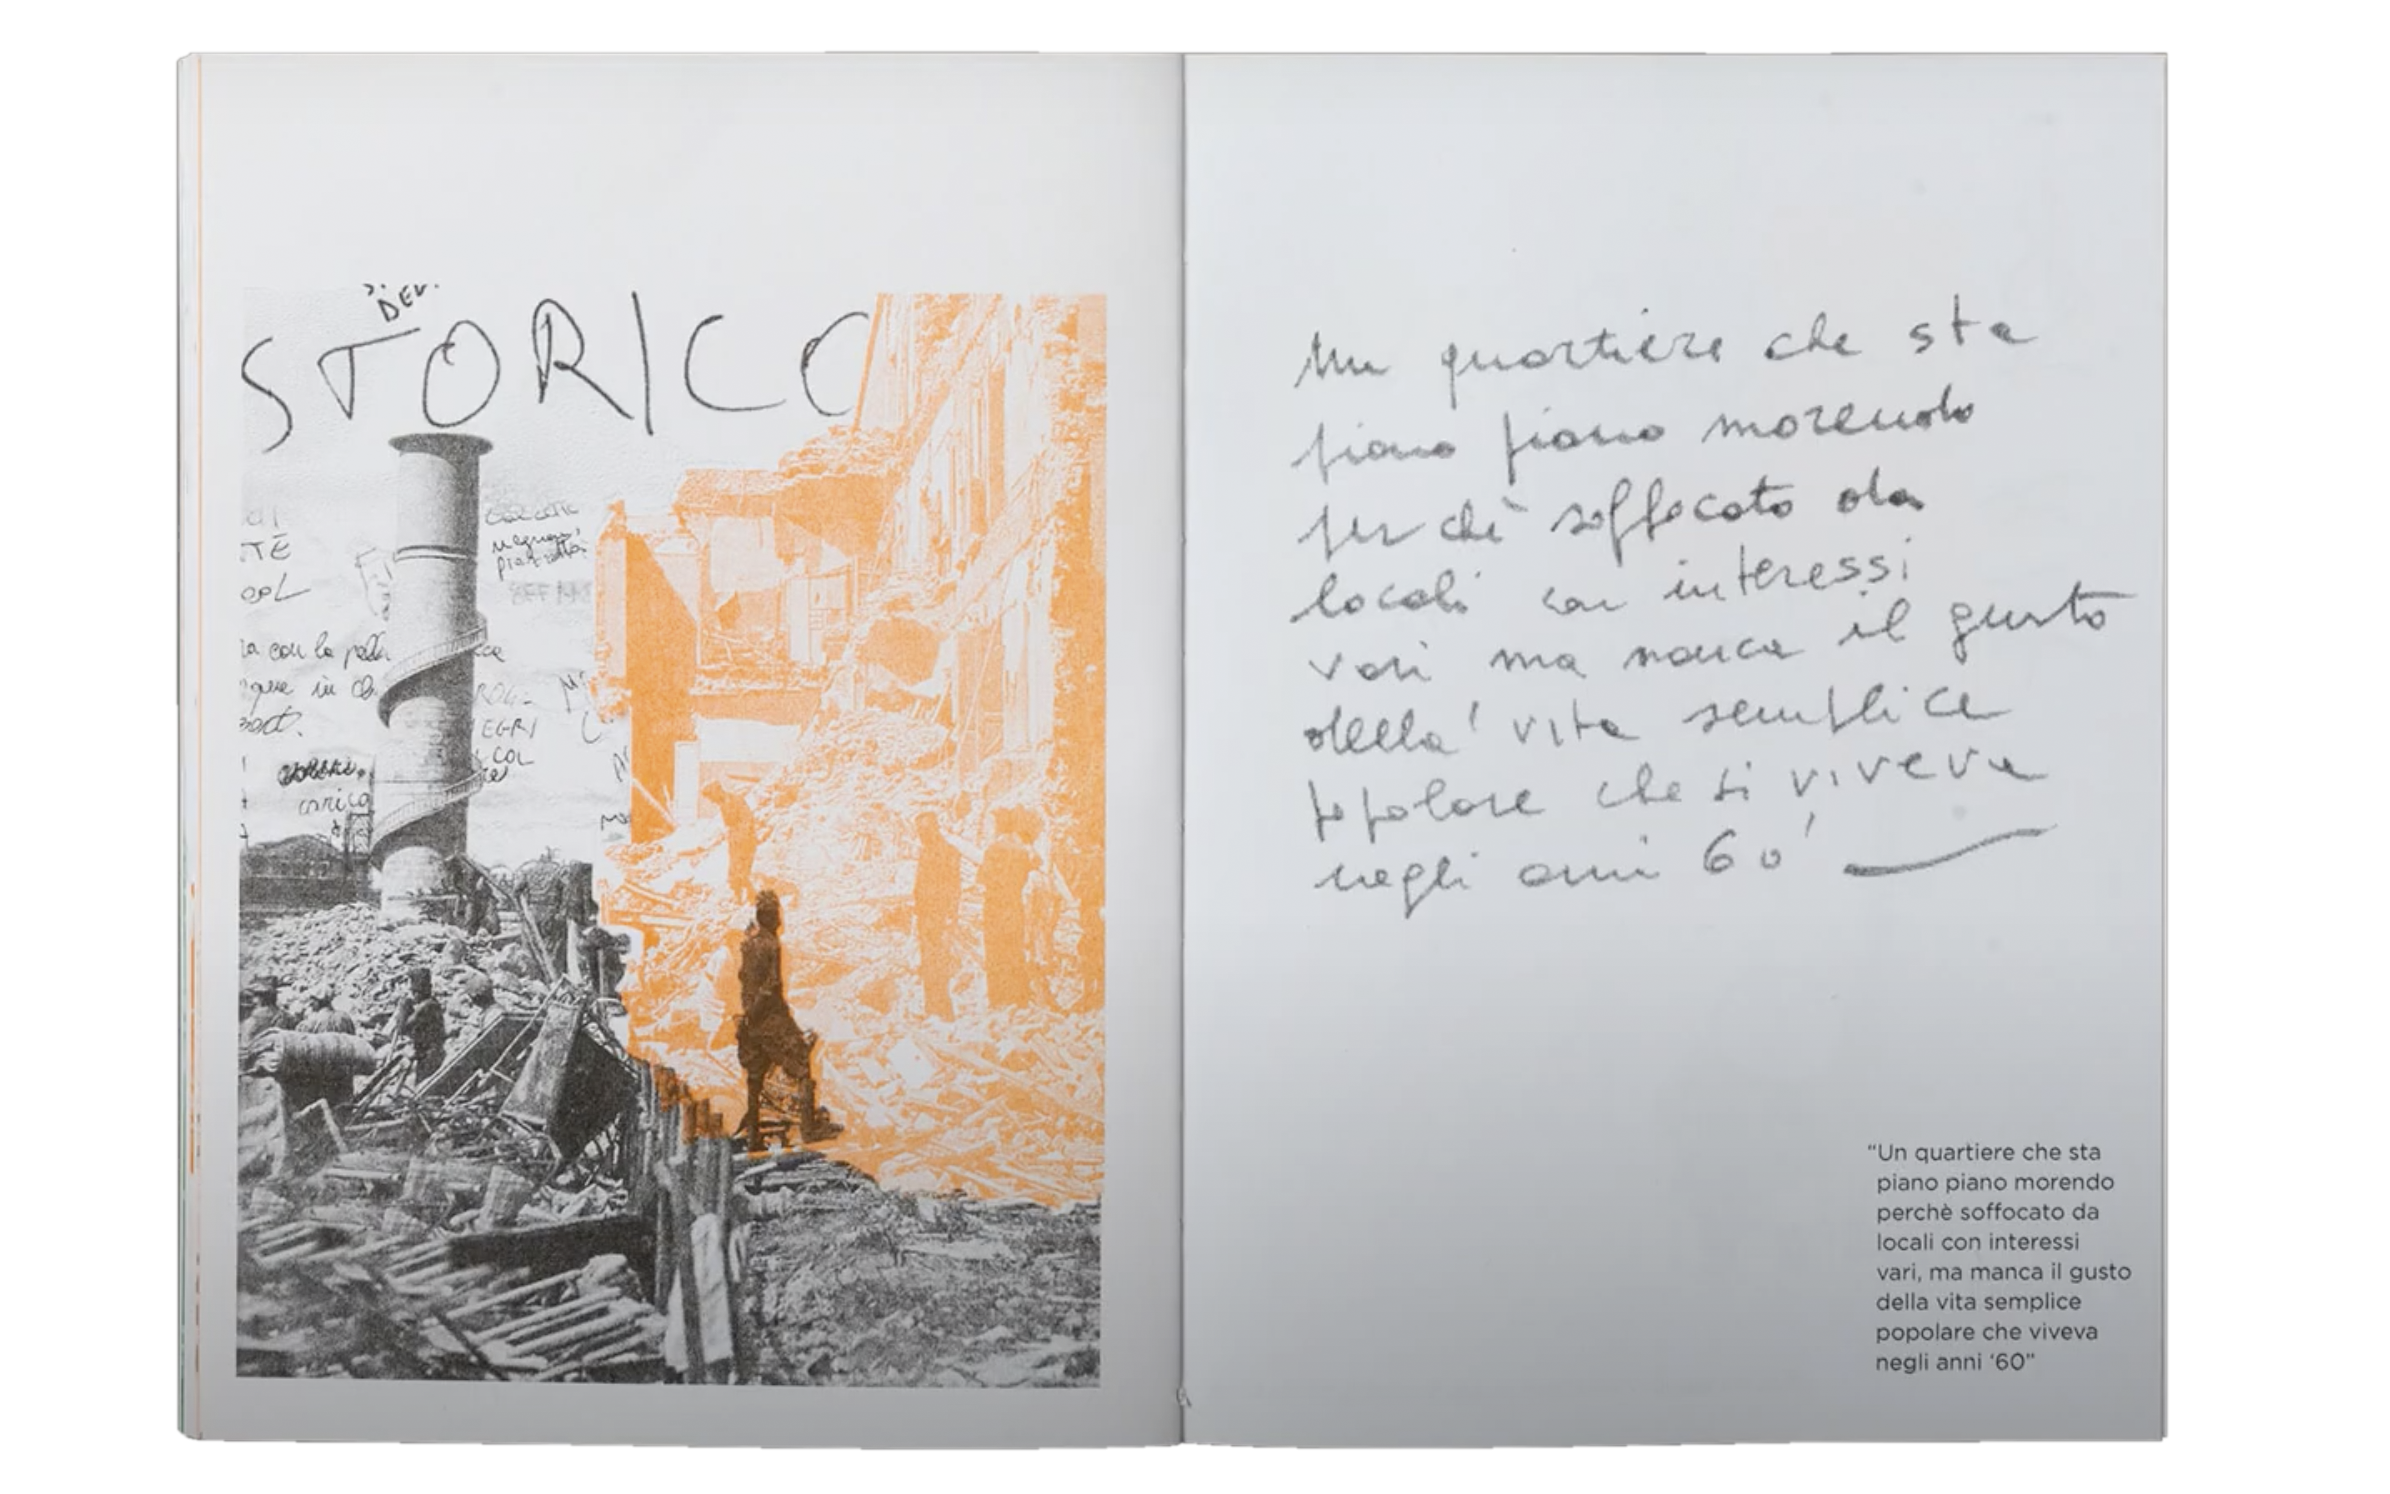 DEV.
STORICO
TÉ
COL
ra con la palla
que in
EGRI
COL
carica
Un quartiere che sta
piano piano morendo
perchè soffocato da
locali con interessi
vari ma manca il gusto
della' vita semplice
popolare che si viveva
negli anni 60'
"Un quartiere che sta
piano piano morendo
perchè soffocato da
locali con interessi
vari, ma manca il gusto
della vita semplice
popolare che viveva
negli anni '60"